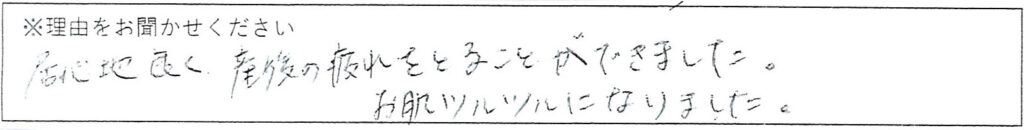 ※理由をお聞かせください
居心地良く、産後の疲れをとることができました。
お肌ツルツルになりました。